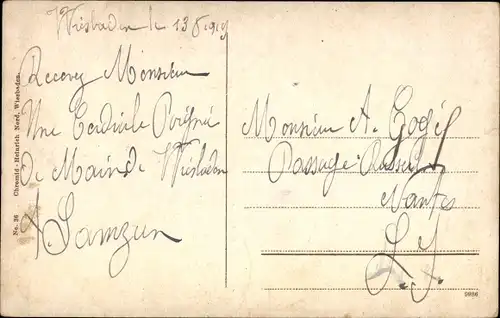 Wiesbaden le 13 8 1919
Recevez Monsieur
Une Cordiale Poignée
De Main de Wiesbaden
Samzun
Monsieur A.
Passage Russeil
Nantes
No. 36 Chromolit - Heinrich Nerd, Wiesbaden.
9986